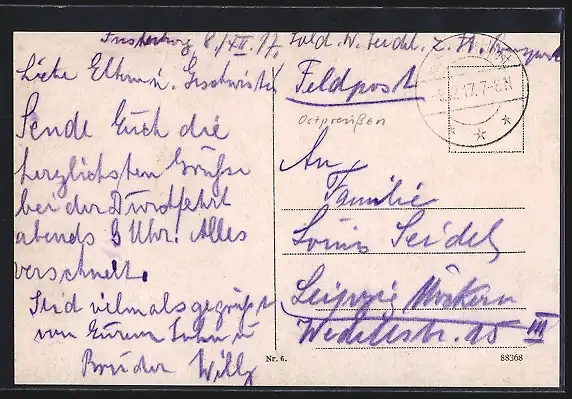 Insterburg, 8./XII. 17. Sold. W. Seidel, z. Zt.
Liebe Eltern u. Geschwister!
Sende Euch die
herzlichsten Grüße
bei der Durchfahrt
abends 8 Uhr. Alles
verschneit.
Seid vielmals gegrüßt
von Eurem Sohn u
Bruder Willy
Feldpost
Ostpreußen
17. 7-8N
An
Familie
Louis Seidel
Leipzig Möckern
Wedellstr. 15 III
Nr. 6.
88368